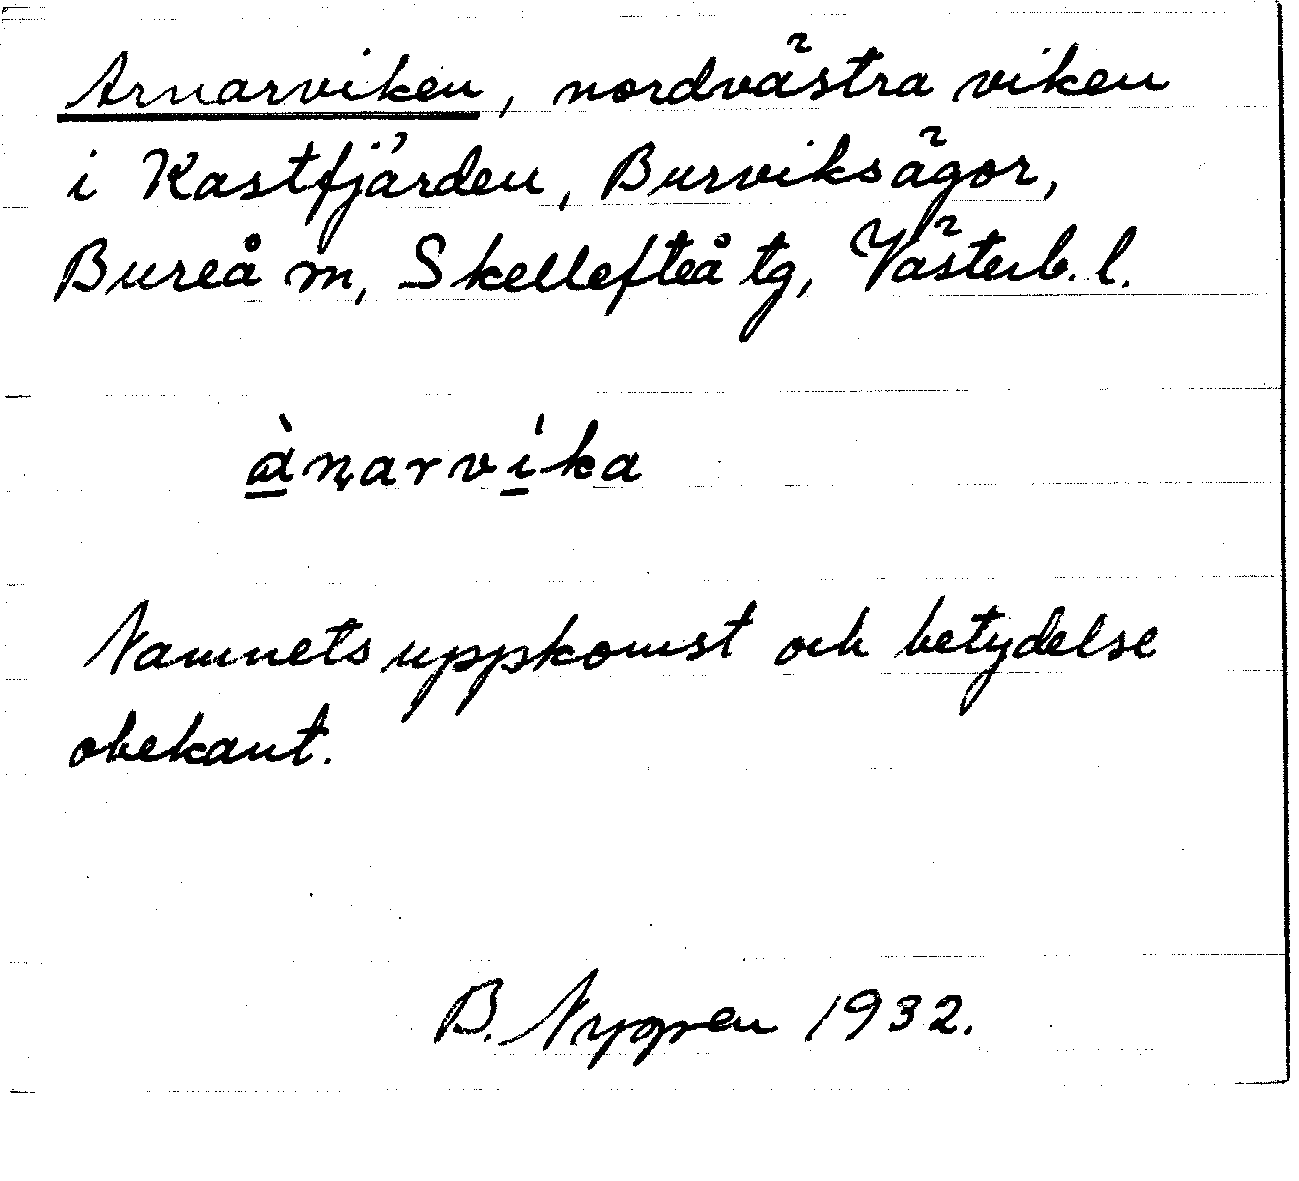 Arnarviken, nordvästra viken
i Kastfjärden, Burviksägor,
Bureå m, Skellefteå tg, Västerb. l.
à̱ṇarví̱ka
Namnets uppkomst och betydelse
obekant.
B. Nygren 1932.